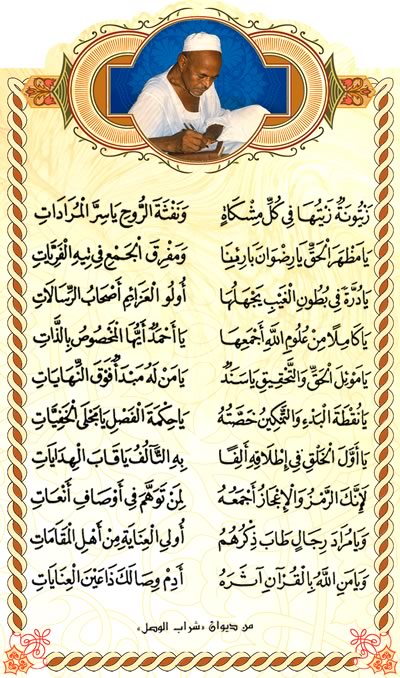 زَيْتُونَةٌ زَيْتُهَا فِي كُلِّ مِشْكَاةٍ وَنَفْثَةَ الرُّوحِ يَاسِرَّ الْمُرَادَاتِ
يَا مَظْهَرَ الْحَقِّ يَا رِضْوَانَ بَارِئِنَا وَمَفْرِقَ الْجَمْعِ فِي تِيهِ الْفَرِيَّاتِ
يَا دُرَّةً فِي بُطُونِ الْغَيْبِ يَجْهَلُهَا أُولُو الْعَزَائِمِ أَصْحَابُ الرِّسَالَاتِ
يَا كَامِلًا مِنْ عُلُومِ اللَّهِ أَجْمَعِهَا يَا أَحْمَدٌ أَيُّهَا الْمَخْصُوصُ بِالذَّاتِ
يَا مَوْئِلَ الْحَقِّ وَالتَّحْقِيقِ يَا سَنَدٌ يَا مَنْ لَهُ مَبْدَأٌ فَوْقَ النِّهَايَاتِ
يَا نُقْطَةَ الْبَدْءِ وَالتَّمْكِينُ خَصَّتُهُ يَا حِكْمَةَ الْفَصْلِ يَا مَجْلَى الْخَفِيَّاتِ
يَا أَوَّلَ الْخَلْقِ فِي إِطْلَاقِهِ أَلِفًا بِهِ التَّآلُفُ يَا قَابَ الْهِدَايَاتِ
لِأَنَّكَ الرَّمْزُ وَالْإِنْجَازُ أَجْمَعُهُ لِمَنْ تَوَهَّمَ فِي أَوْصَافِ أَنْعَاتِ
وَيَا مُرَادَ رِجَالٍ طَابَ ذِكْرُهُمُ أُولِي الْعِنَايَةِ مِنْ أَهْلِ الْمَقَامَاتِ
وَيَا مَنِ اللَّهُ بِالْقُرْآنِ آثَرَهُ أَدِمْ وِصَالَكَ ذَا عَيْنَ الْعِنَايَاتِ
من ديوان «شراب الوصل»